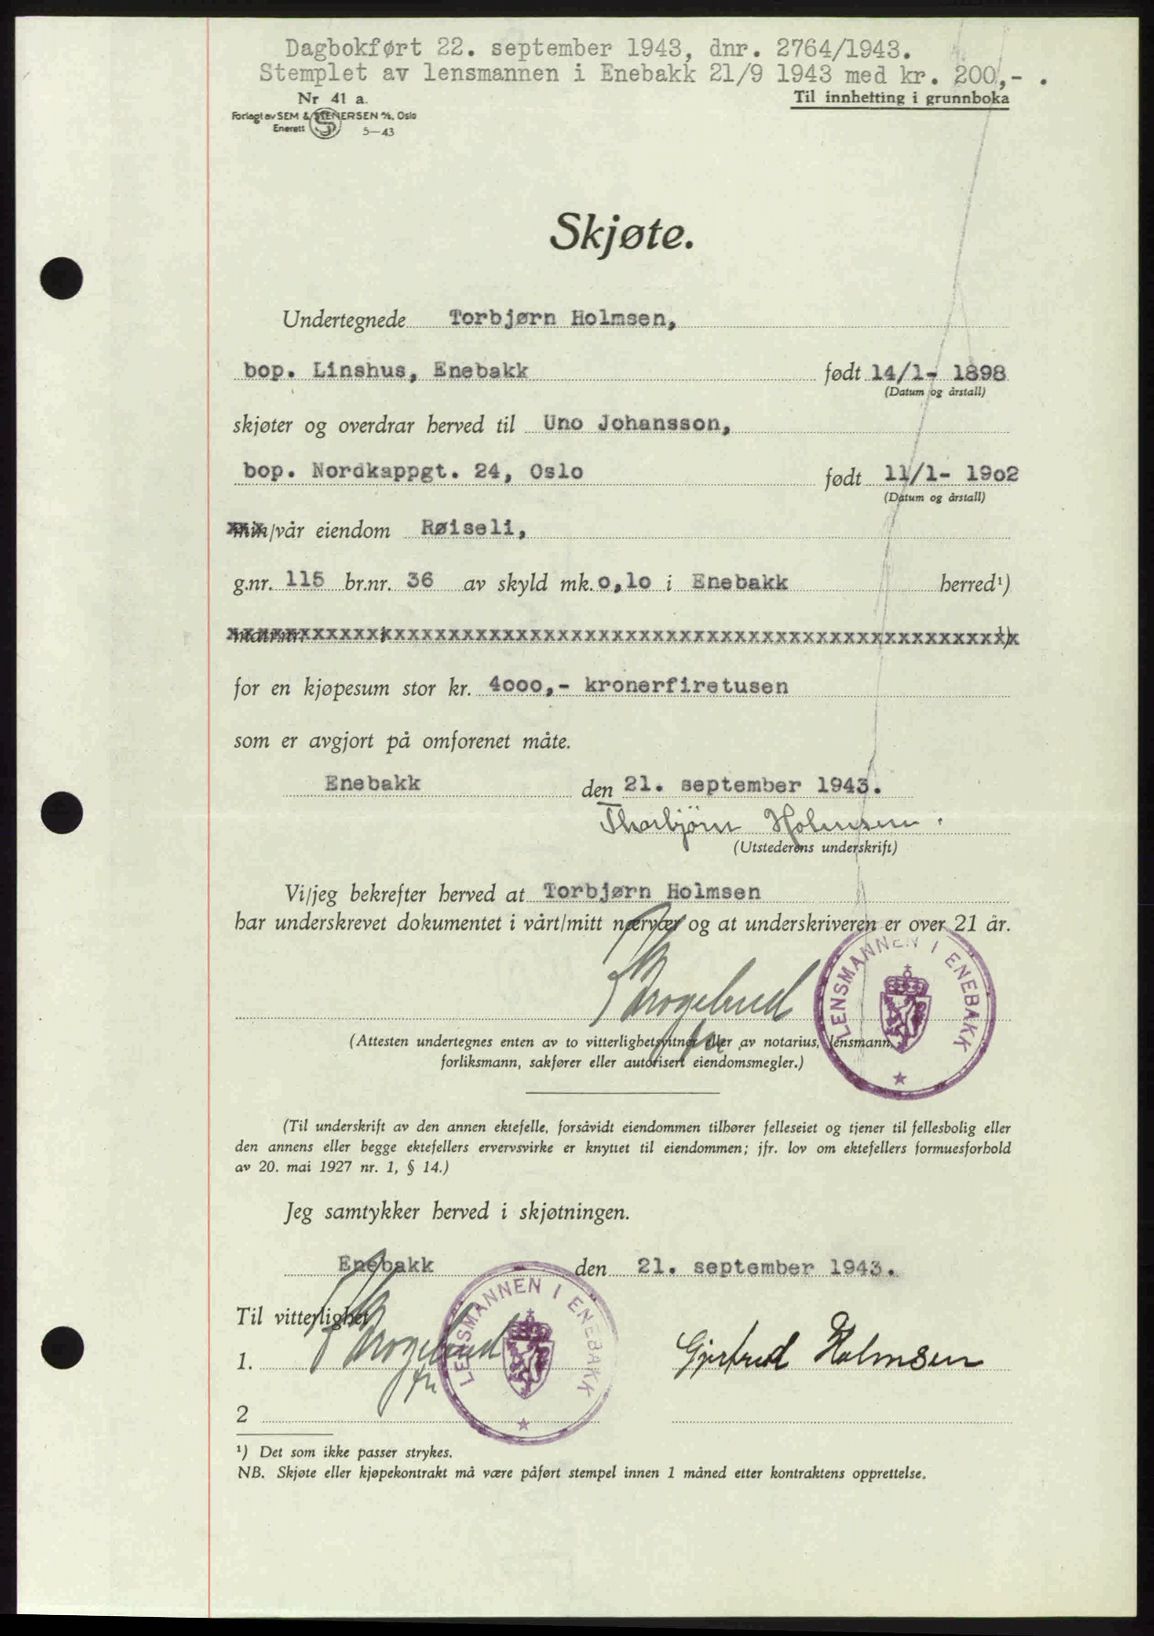 Dagbokført 22. september 1943, dnr. 2764/1943.
Stemplet av lensmannen i Enebakk 21/9 1943 med kr. 200,- .
Nr 41 a.
Til innhefting i grunnboka
Forlagt av SEM & STENERSEN A/S, Oslo
Enerett S 5—43
Skjøte.
Undertegnede Torbjørn Holmsen,
bop. Linshus, Enebakk født 14/1- 1898
(Datum og årstall)
skjøter og overdrar herved til Uno Johansson,
bop. Nordkappgt. 24, Oslo født 11/1- 19o2
(Datum og årstall)
min/vår eiendom Røiseli,
g.nr. 115 br.nr. 36 av skyld mk. o,1o i Enebakk herred¹)
matr.nr. i ¹)
for en kjøpesum stor kr. 4ooo,- kronerfiretusen
som er avgjort på omforenet måte.
Enebakk den 21. september 1943.
Thorbjörn Holmsen.
(Utstederens underskrift)
Vi/jeg bekrefter herved at Torbjørn Holmsen
har underskrevet dokumentet i vårt/mitt nærvær og at underskriveren er over 21 år.
LENSMANNEN I ENEBAKK
(Attesten undertegnes enten av to vitterlighetsvitner eller av notarius, lensmann,
forliksmann, sakfører eller autorisert eiendomsmegler.)
(Til underskrift av den annen ektefelle, forsåvidt eiendommen tilhører felleseiet og tjener til fellesbolig eller
den annens eller begge ektefellers ervervsvirke er knyttet til eiendommen; jfr. lov om ektefellers formuesforhold
av 20. mai 1927 nr. 1, § 14.)
Jeg samtykker herved i skjøtningen.
Enebakk den 21. september 1943.
Til vitterlighet
LENSMANNEN I ENEBAKK
1. Gjertrud Holmsen
2
¹) Det som ikke passer strykes.
NB. Skjøte eller kjøpekontrakt må være påført stempel innen 1 måned etter kontraktens opprettelse.